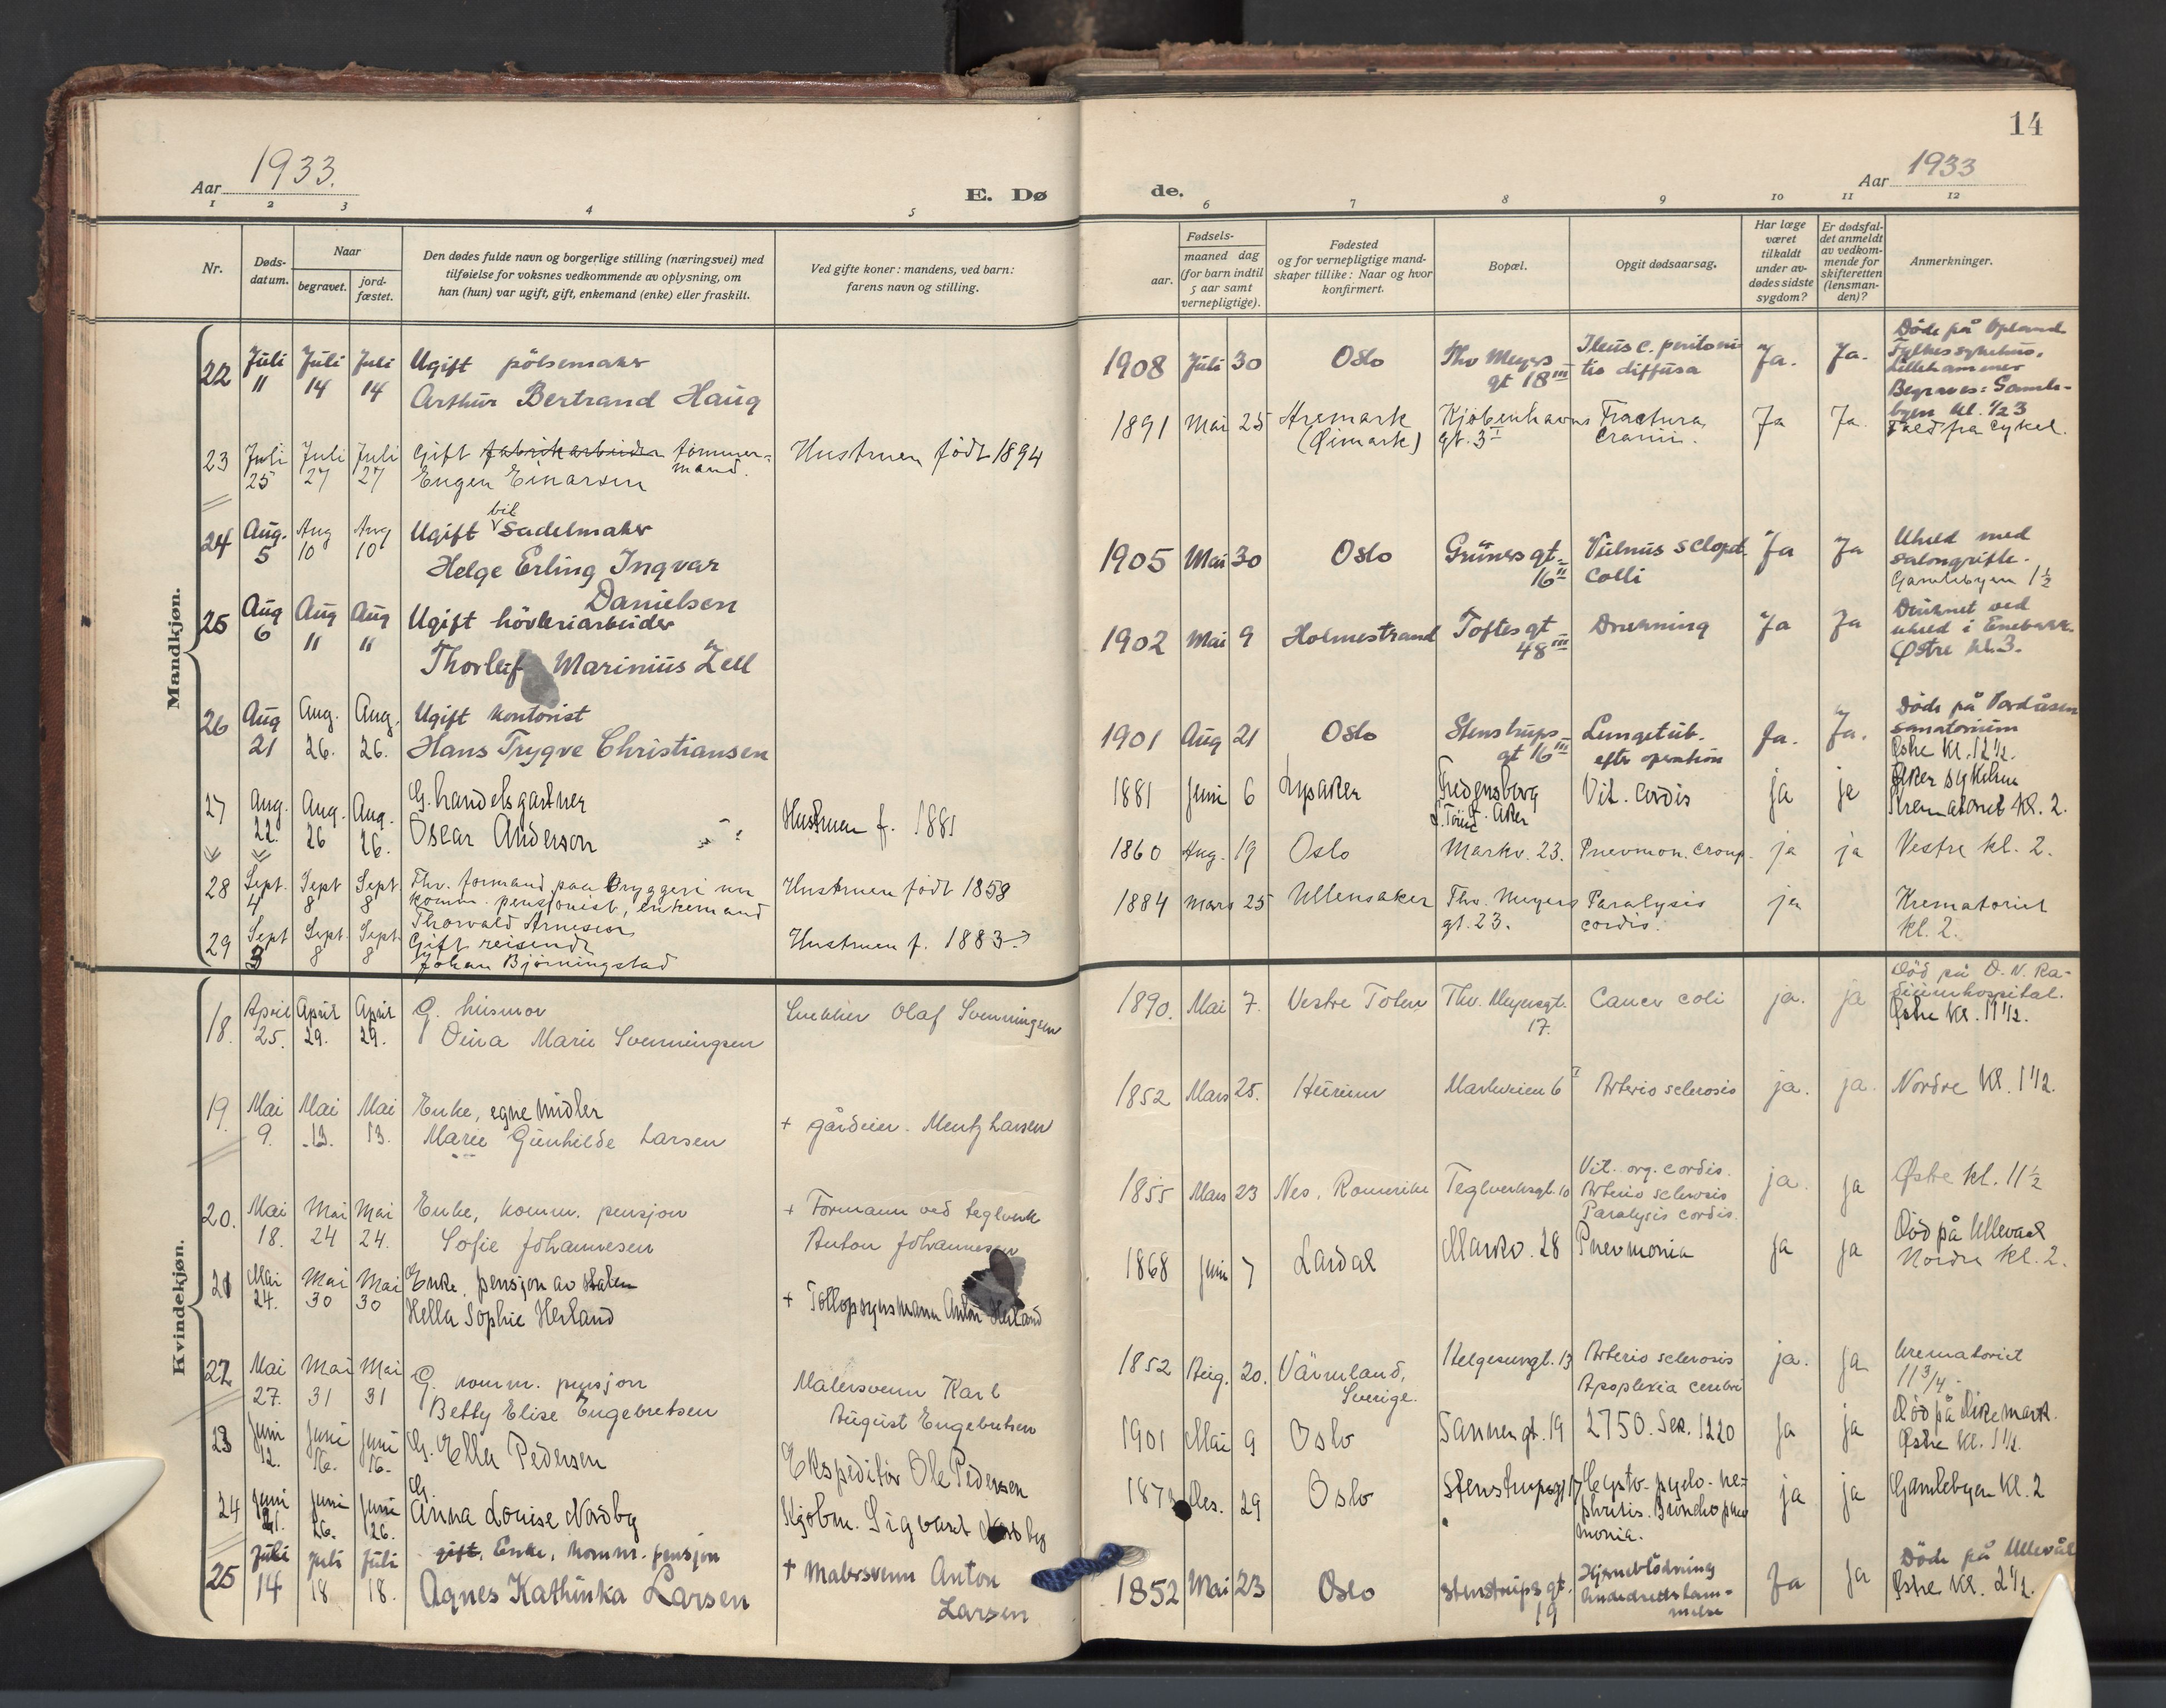 14
Aar 1933.
E. Dø
de.
Aar 1933
1 2 3 4 5 6 7 8 9 10 11 12
Nr.
Døds-
datum.
Naar
begravet.
jord-
fæstet.
Den dødes fulde navn og borgerlige stilling (næringsvei) med
tilføielse for voksnes vedkommende av oplysning, om
han (hun) var ugift, gift, enkemand (enke) eller fraskilt.
Ved gifte koner: mandens, ved barn:
farens navn og stilling.
Fødsels-
aar.
maaned dag
(for barn indtil
5 aar samt
vernepligtige).
Fødested
og for vernepligtige mand-
skaper tillike: Naar og hvor
konfirmert.
Bopæl.
Opgit dødsaarsag.
Har læge
været
tilkaldt
under av-
dødes sidste
sygdom?
Er dødsfal-
det anmeldt
av vedkom-
mende for
skifteretten
(lensman-
den)?
Anmerkninger.
Mandkjøn.
22 Juli 11 Juli 14 Juli 14 Ugift pölsemaker
Arthur Bertrand Haug
1908 Juli 30 Oslo Thv Meyers
gt 18 III
Ileus c. peritoni
tis diffusa
Ja. Ja.
Döde på Opland
Fylkessykehus,
Lillehammer
Begraves: Gamle-
byen kl. 1/2 3
23 Juli 25 Juli 27 Juli 27 Gift fabrikarbeider tömmer-
mand.
Eugen Einarsen
Hustruen födt 1894
1891 Mai 25 Aremark
(Øimark)
Kjöbenhavns
gt. 3 II
Fractura
cranii.
Ja Ja.
Fald fra cykel.
24 Aug. 5 Aug 10 Aug 10 Ugift bil sadelmaker
Helge Erling Ingvar
Danielsen
1905 Mai 30 Oslo Grüners gt.
16 II
Vulnus sclopt.
colli
Ja Ja
Uheld med
salongrifle.
Gamlebyen 1 1/2
25 Aug 6 Aug 11 Aug 11 Ugift hövleriarbeider
Thorleif Marinius Zell
1902 Mai 9 Holmestrand Toftes gt
48 III
Drukning Ja Ja
Druknet ved
uheld i Enebakk.
Østre kl. 3.
26 Aug 21 Aug. 26. Aug. 26. Ugift kontorist
Hans Trygve Christiansen
1901 Aug 21 Oslo Stenstrups
gt 16 III
Lungetub.
efter operation
Ja. Ja.
Döde på Vardåsen
sanatorium
Østre Kl. 12 1/2.
27 Aug. 22. Aug. 26 Aug. 26. G. handelsgartner
Oscar Anderson
Hustruen f. 1881
1881 Juni 6 Lysaker Fredensborg
Aker
Vit. Cordis ja ja
Aker sykehus
Krematoriet Kl. 2.
28 Sept. 4 Sept 8 Sept. 8 Fhv. formand paa Bryggeri nu
komm. pensjonist, enkemand
Thorvald Arnesen
Hustruen födt 1858
1860 Aug. 19 Oslo Markv. 23. Pnevmon. croup. ja ja Vestre kl. 2.
29 Sept 3 Sept. 8 Sept. 8 Gift reisende
Johan Björningstad
Hustruen f. 1883
1884 Mars 25 Ullensaker Thv. Meyers
gt. 23.
Paralysis
cordis.
ja
Krematoriet
kl. 2.
Kvindekjøn.
18. April 25. April 29. April 29. G. husmor
Oina Marie Svenningsen
Snekker Olaf Svenningsen
1890. Mai 7. Vestre Toten Thv. Meyersgt.
17.
Cancer coli ja. ja
Död på D. N. Ra-
diumhospital.
Østre Kl. 11 1/2.
19. Mai 9. Mai 13. Mai 13. Enke, egne midler
Marie Gunhilde Larsen
+ gårdeier. Mentz Larsen
1852 Mars 25. Hurum Markveien 6 I Arterio sclerosis ja. ja. Nordre Kl. 1 1/2.
20. Mai 18. Mai 24 Mai 24. Enke, komm. pensjon
Sofie Johannesen
+ Formann ved teglverk
Anton Johannesen
1855 Mars 23 Nes, Romerike Teglverksgt. 10
Vit. org. cordis.
Arterio sclerosis
Paralysis cordis.
ja. ja Østre kl. 11 1/2
21 Mai 24. Mai 30 Mai 30 Enke, pensjon av staten
Hella Sophie Herland
+ Tollopsynsmann Anton Herland
1868 Juni 7 Lardal Markv. 28 Pnevmonia ja ja
Död på Ullevaal
Nordre kl. 2.
22 Mai 27. Mai 31 Mai 31 G. komm. pensjon
Betty Elise Engebretsen
Malersvenn Karl
August Engebretsen
1852 Aug. 20. Värmland,
Sverige.
Helgesensgt. 13
Arterio sclerosis
Apoplexia cerebri
ja. ja
Krematoriet
11 3/4.
23 Juni 12. Juni 16. Juni 16. G. Ella Pedersen
Ekspeditør Ole Pedersen
1901 Mai 9 Oslo Sanner gt. 19 2750. Sek. 1220 ja ja
Död på Dikemark.
Østre Kl. 1 1/2.
24 Juni 21. Juni 26. Juni 26. G.
Anna Louise Nordby
Kjøbm. Sigvart Nordby
187 Des. 29 Oslo Stenstrupsgt 17
Cysto-pyelo-ne-
phritis. Broncho pnev
monia.
ja ja Gamlebyen Kl. 2
25 Juli 14 Juli 18 Juli 18. gift, Enke, komm. pensjon
Agnes Kathinka Larsen
+ Malersvenn Anton
Larsen
1852 Mai 23 Oslo Stenstrups gt.
19
Hjerneblödning
Aandedrettslam-
melse
Ja Ja
Döde på Ullevål
Østre Kl. 2 1/2.